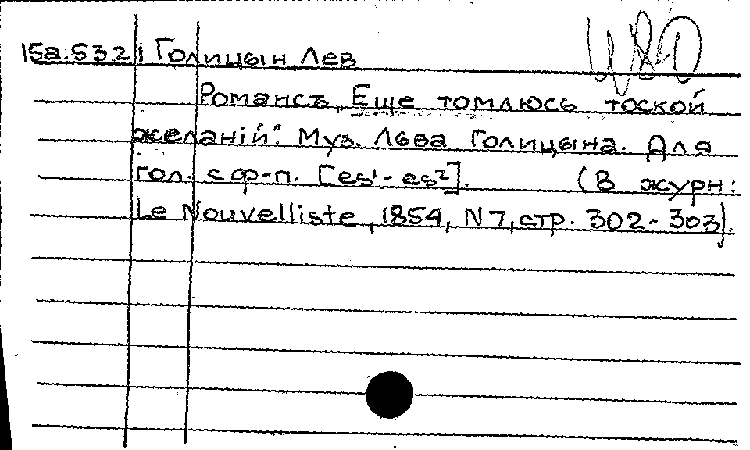 15а.532 Голицын Лев
Романсъ „Еще томлюсь тоской
желаній". Муз. Льва Голицына. Для
гол. с ф-п. [es¹-as²]. (В журн:
Le Nouvelliste, 1854, N 7, стр. 302-303).